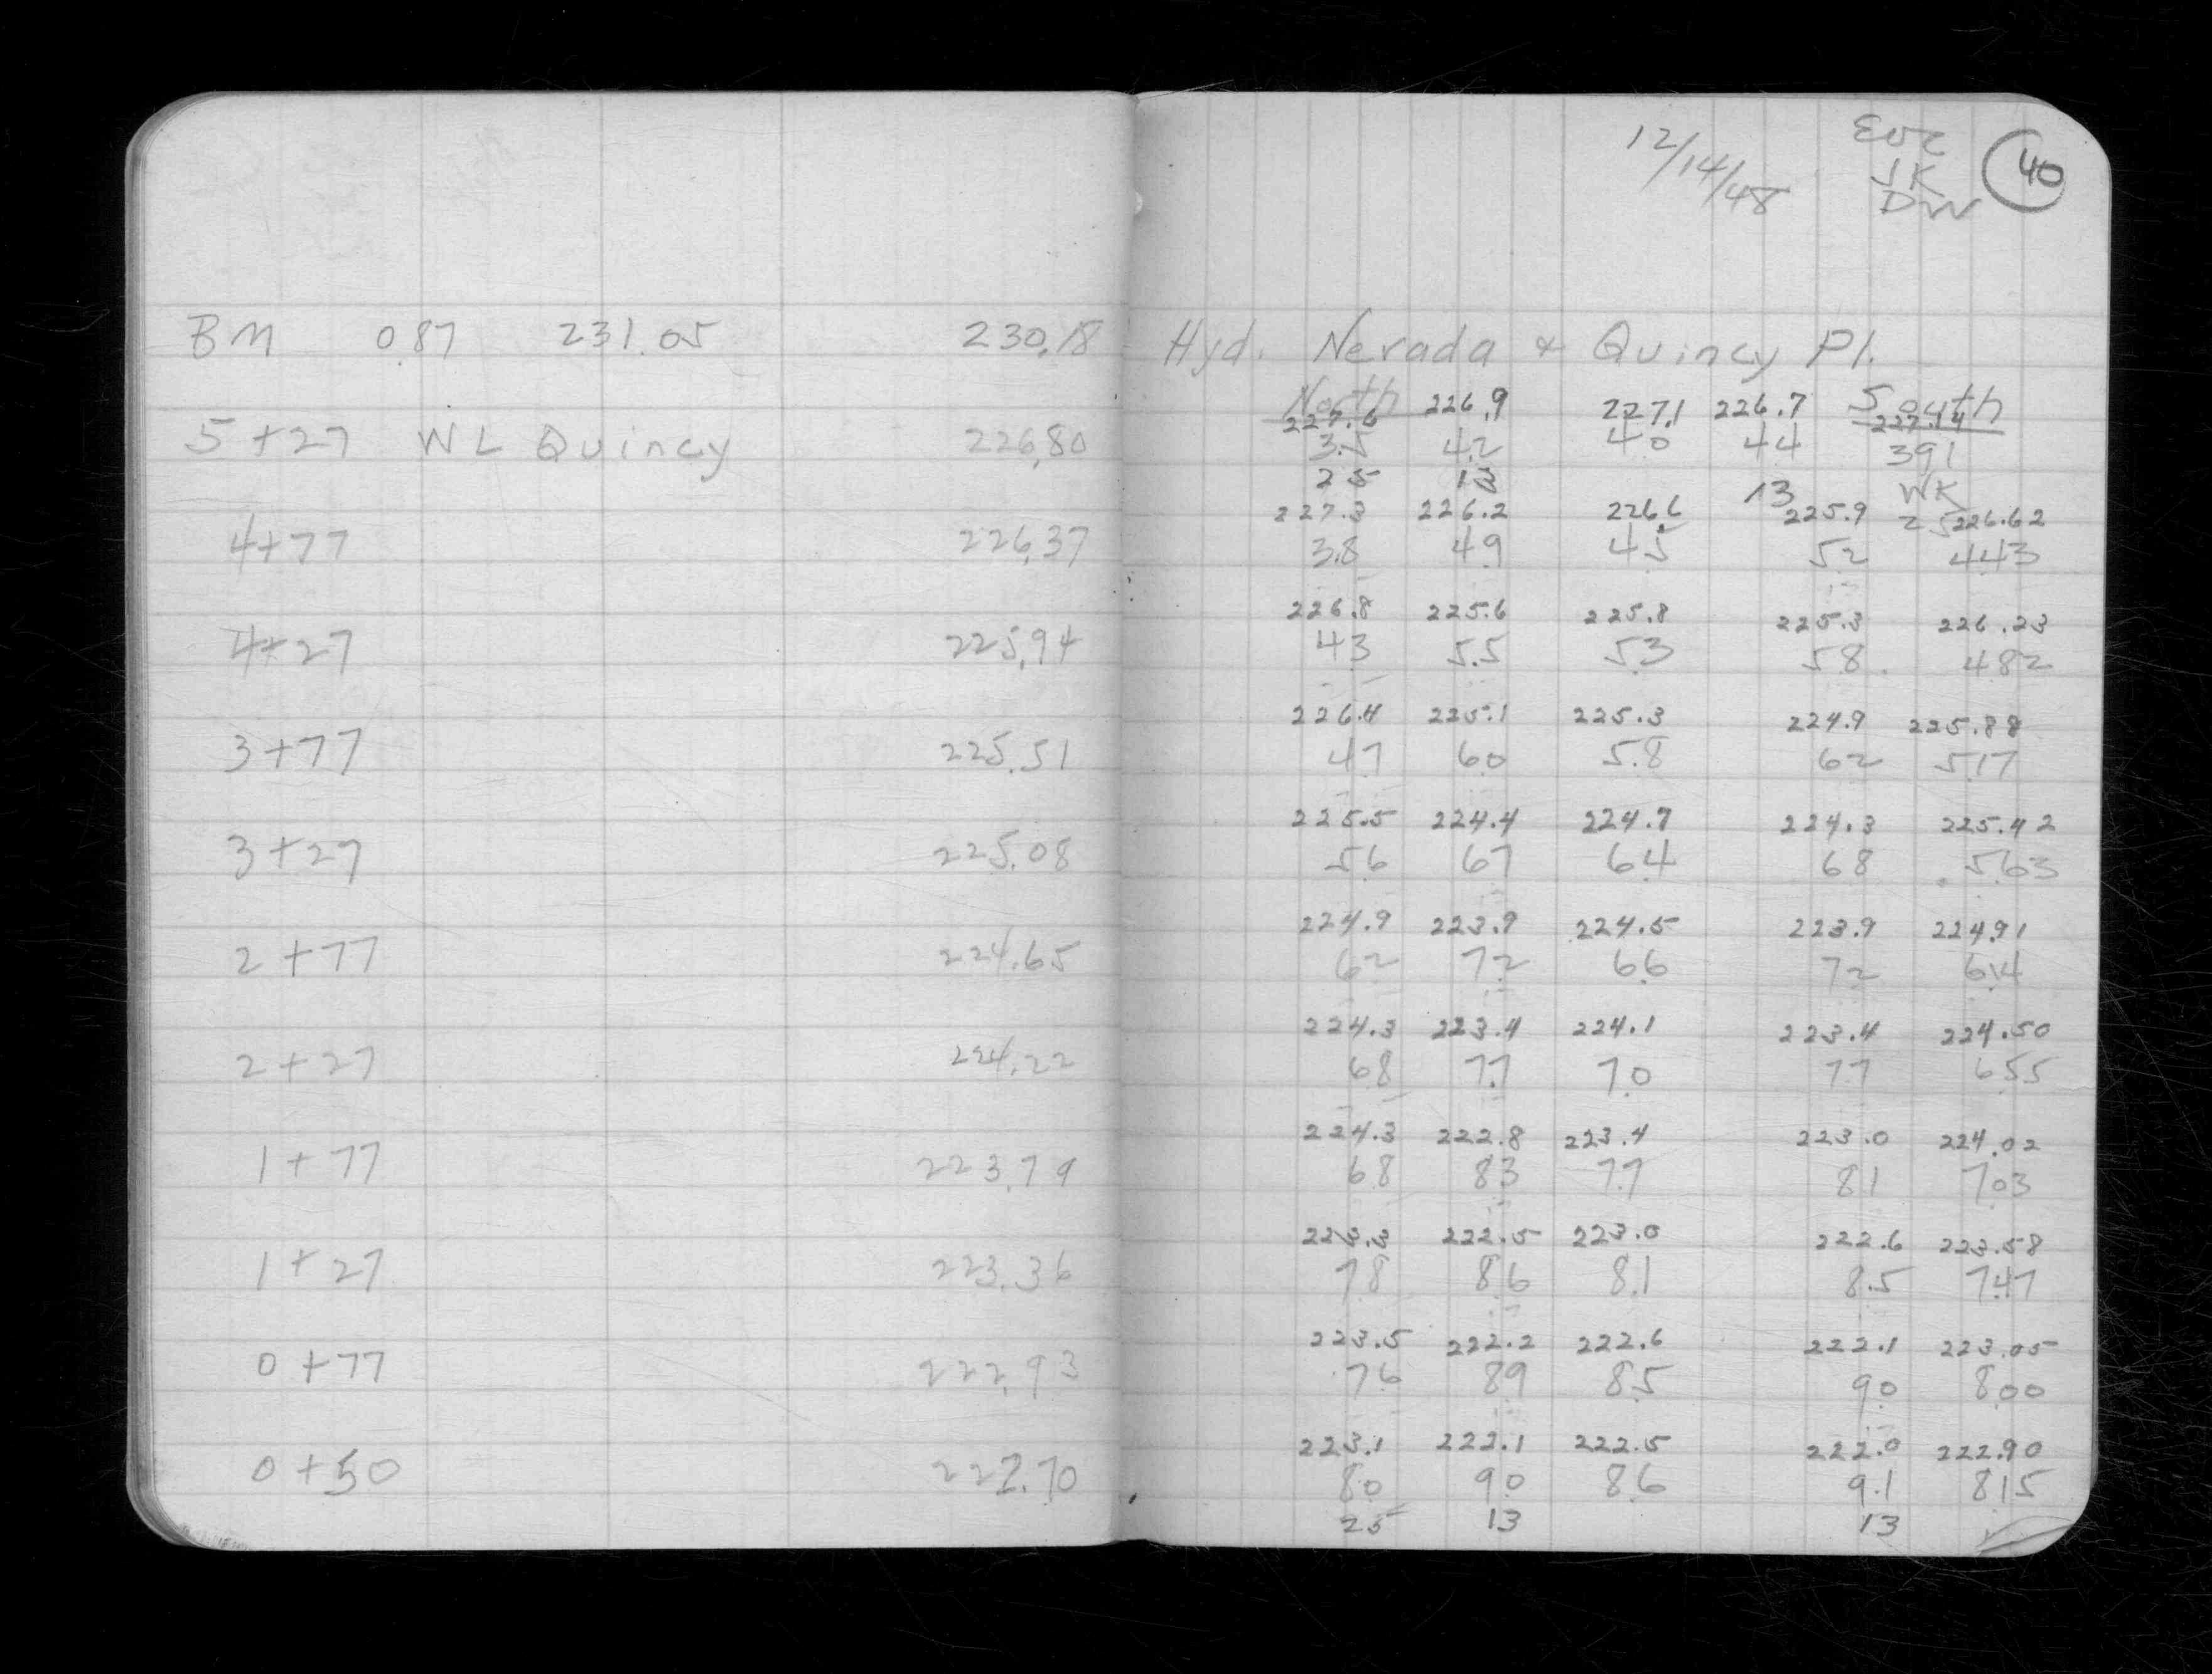 12/14/48 EOC 40
JK
DW
BM 0.87 231.05 230.18 Hyd. Nevada & Quincy Pl.
North 226.9 227.1 226.7 South
227.6 227.14
5+27 WL Quincy 226.80 3.5 4.2 4.0 44 391
25 13 13 WK
227.3 226.2 226.6 225.9 25 226.62
4+77 226.37 3.8 4.9 4.5 52 443
226.8 225.6 225.8 225.3 226.23
4+27 225.94 43 5.5 53 58 482
226.4 225.1 225.3 224.9 225.88
3+77 225.51 47 60 5.8 62 517
225.5 224.4 224.7 224.3 225.42
3+27 225.08 56 67 64 68 563
224.9 223.9 224.5 223.9 224.91
2+77 224.65 62 72 66 72 614
224.3 223.4 224.1 223.4 224.50
2+27 224.22 68 7.7 7.0 77 655
224.3 222.8 223.4 223.0 224.02
1+77 223.79 68 83 7.7 81 7.03
223.3 222.5 223.0 222.6 223.58
1+27 223.36 78 86 8.1 8.5 7.47
223.5 222.2 222.6 222.1 223.05
0+77 222.93 76 89 8.5 9.0 8.00
223.1 222.1 222.5 222.0 222.90
0+50 222.70 8.0 9.0 8.6 9.1 8.15
25 13 13